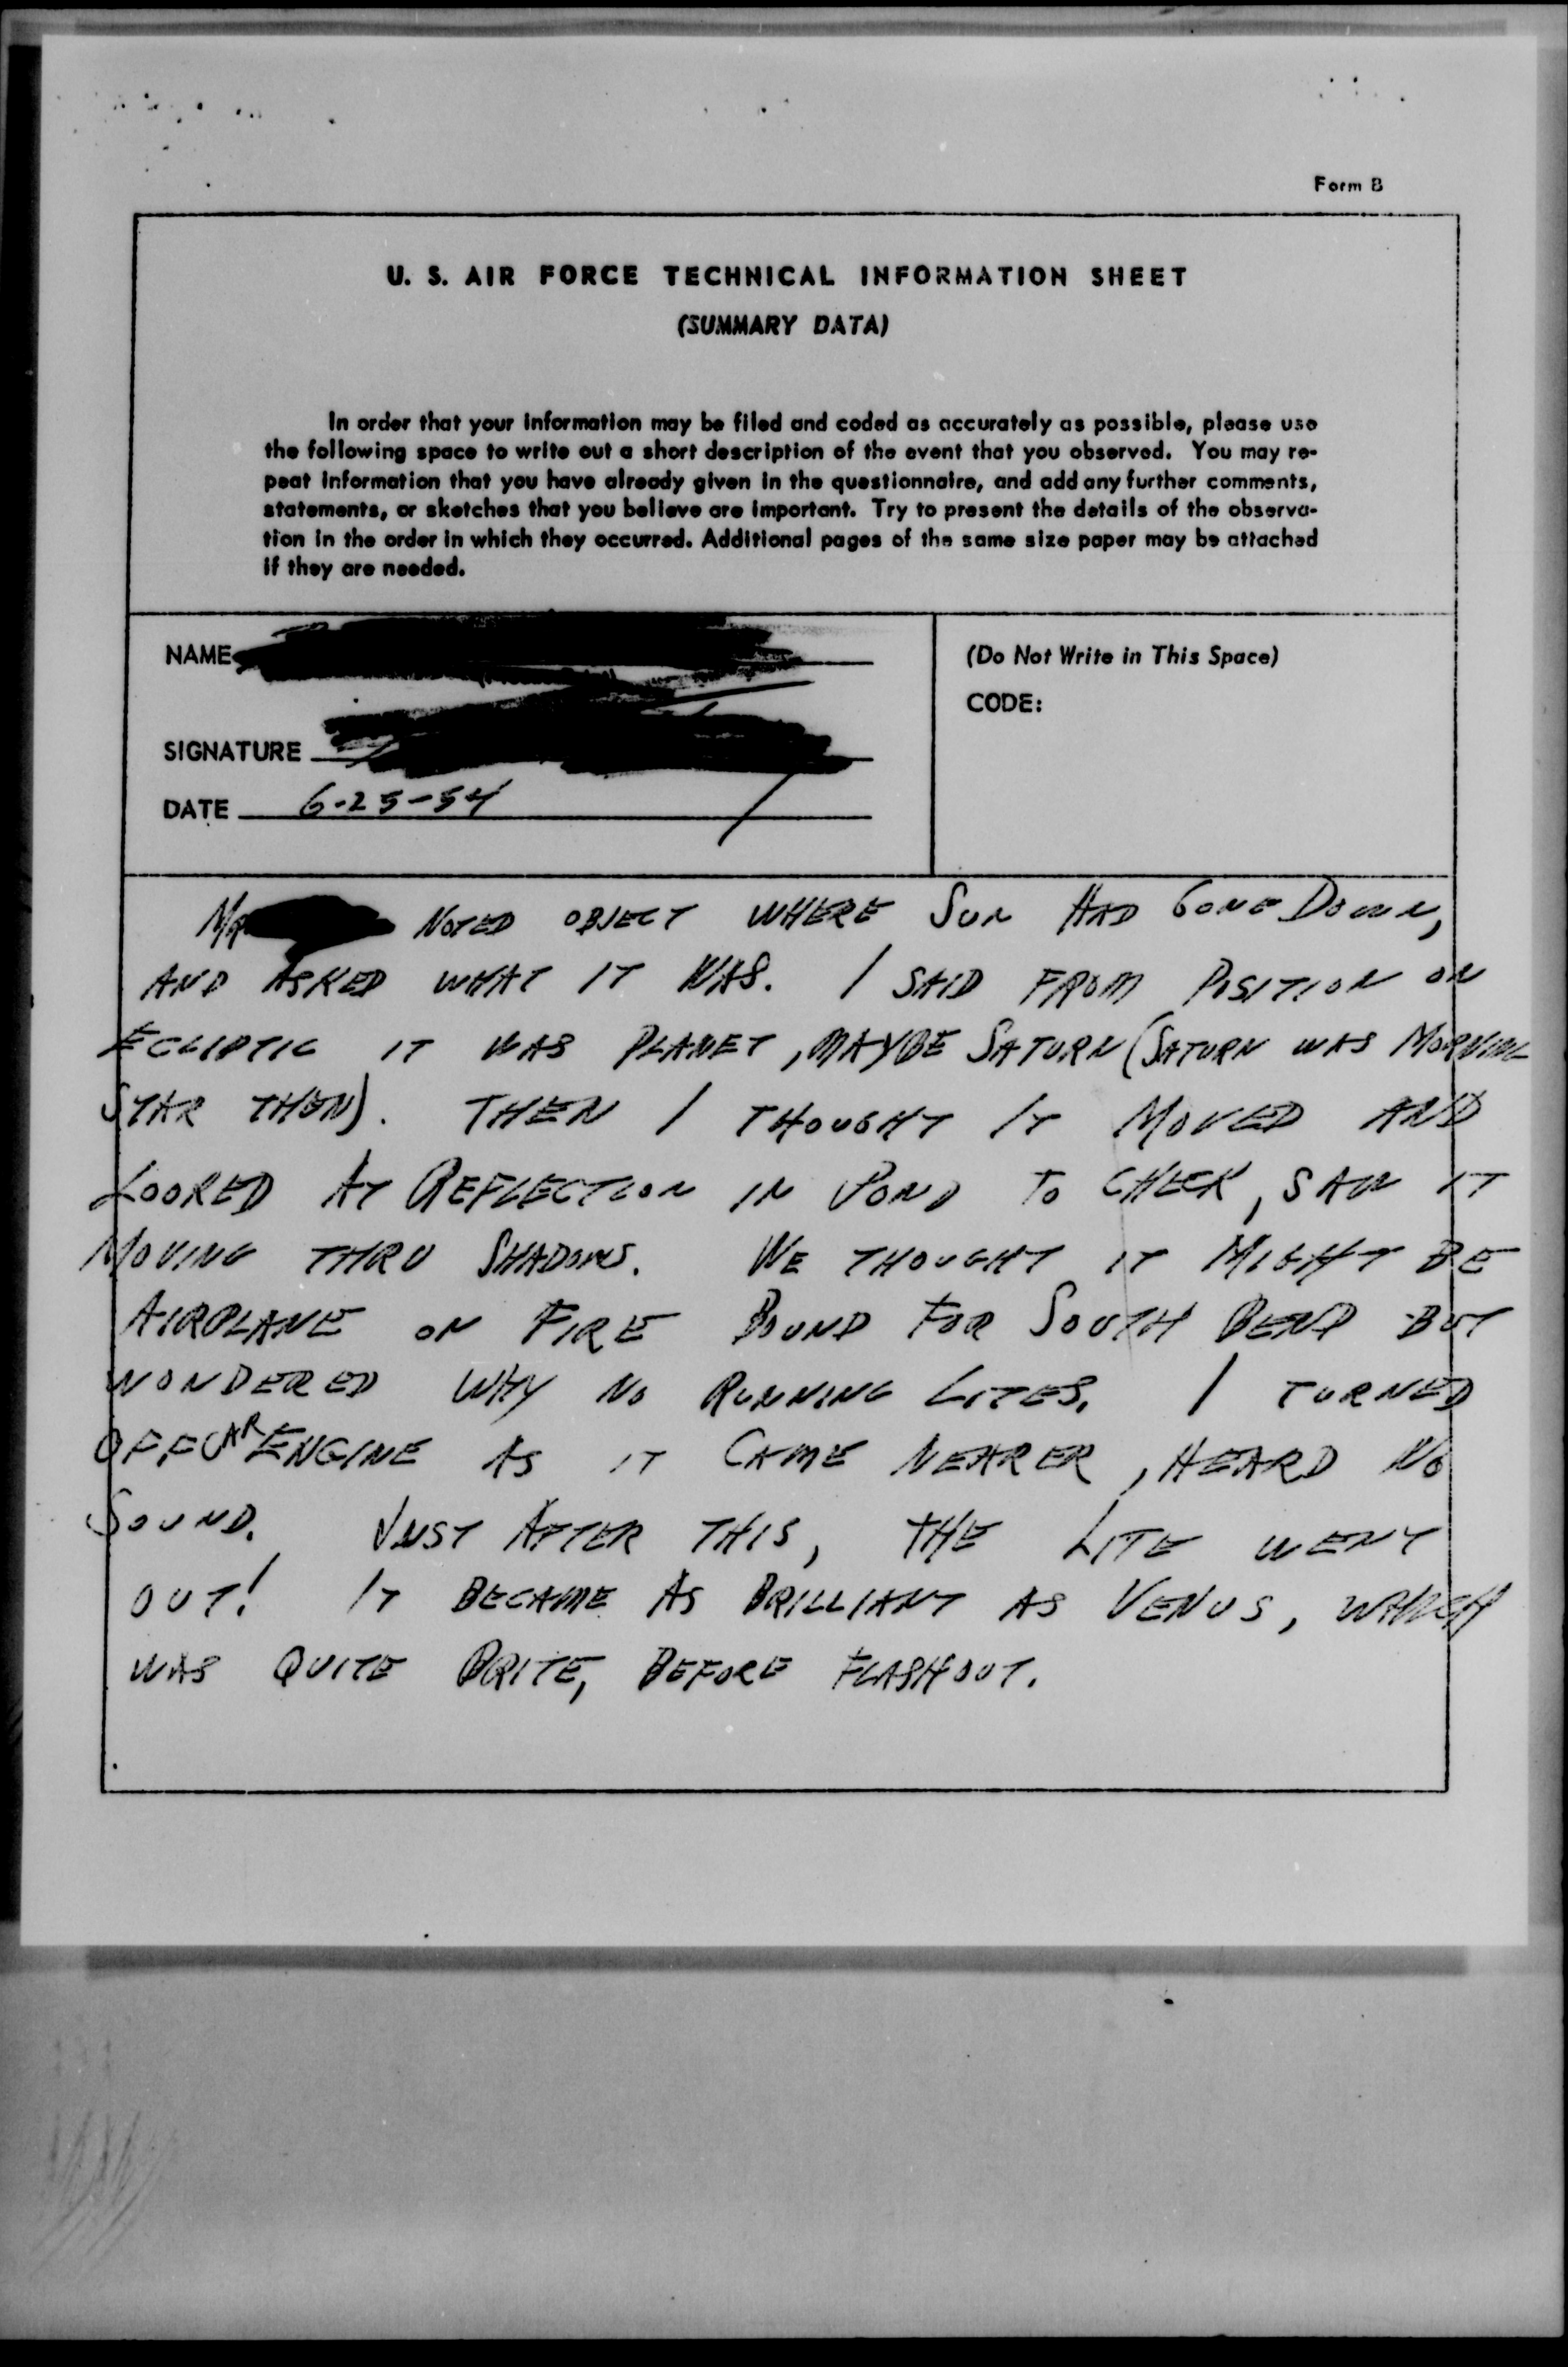 Form B
U. S. AIR FORCE TECHNICAL INFORMATION SHEET
(SUMMARY DATA)
In order that your information may be filed and coded as accurately as possible, please use
the following space to write out a short description of the event that you observed. You may re-
peat information that you have already given in the questionnaire, and add any further comments,
statements, or sketches that you believe are important. Try to present the details of the observa-
tion in the order in which they occurred. Additional pages of the same size paper may be attached
if they are needed.
NAME
(Do Not Write in This Space)
CODE:
SIGNATURE
DATE 6-25-54
MR NOTED OBJECT WHERE SUN HAD GONE DOWN,
AND ASKED WHAT IT WAS. I SAID FROM POSITION ON
ECLIPTIC IT WAS PLANET, MAYBE SATURN (SATURN WAS MORNING
STAR THEN). THEN I THOUGHT IT MOVED AND
LOOKED AT REFLECTION IN POND TO CHECK, SAW IT
MOVING THRU SHADOWS. WE THOUGHT IT MIGHT BE
AIRPLANE ON FIRE BOUND FOR SOUTH BEND BUT
WONDERED WHY NO RUNNING LITES. I TURNED
OFF CAR ENGINE AS IT CAME NEARER, HEARD NO
SOUND. JUST AFTER THIS, THE LITE WENT
OUT! IT BECAME AS BRILLIANT AS VENUS, WHICH
WAS QUITE BRITE, BEFORE FLASHOUT.